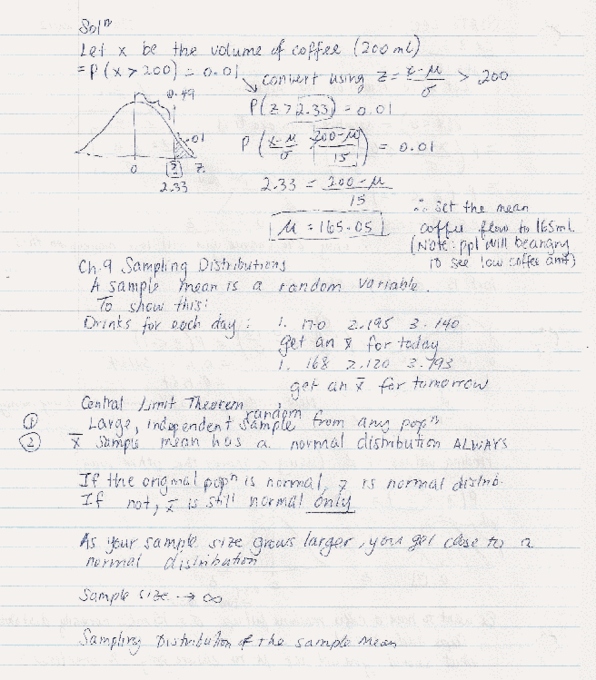 Solⁿ
Let x be the volume of coffee (200 ml)
= P(x > 200) = 0.01 convert using z = x-μ/σ > 200
0.49
P(z > 2.33) = 0.01
.01
P(x-μ/σ 200-μ/15) = 0.01
0 z z
2.33
2.33 = 200-μ/15
μ = 165.05
∴ set the mean
coffee flow to 165ml
(Note: ppl will be angry
to see low coffee amt)
Ch.9 Sampling Distributions
A sample mean is a random variable.
To show this:
Drinks for each day: 1. 170 2. 195 3. 140
get an x̄ for today
1. 168 2. 120 3. 193
get an x̄ for tomorrow
Central Limit Theorem
① Large, independent random sample from any popⁿ
② x̄ sample mean has a normal distribution ALWAYS
If the original popⁿ is normal, x̄ is normal distrib.
If not, x̄ is still normal only
As your sample size grows larger, you get close to a
normal distribution
Sample size → ∞
Sampling Distribution of the sample mean